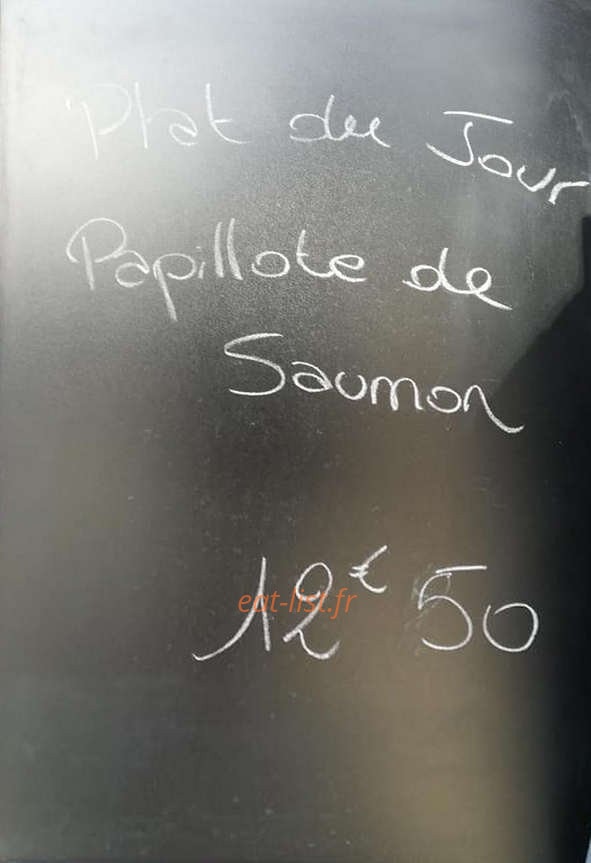 Plat du Jour
Papillote de
Saumon
12€50
eat-list.fr